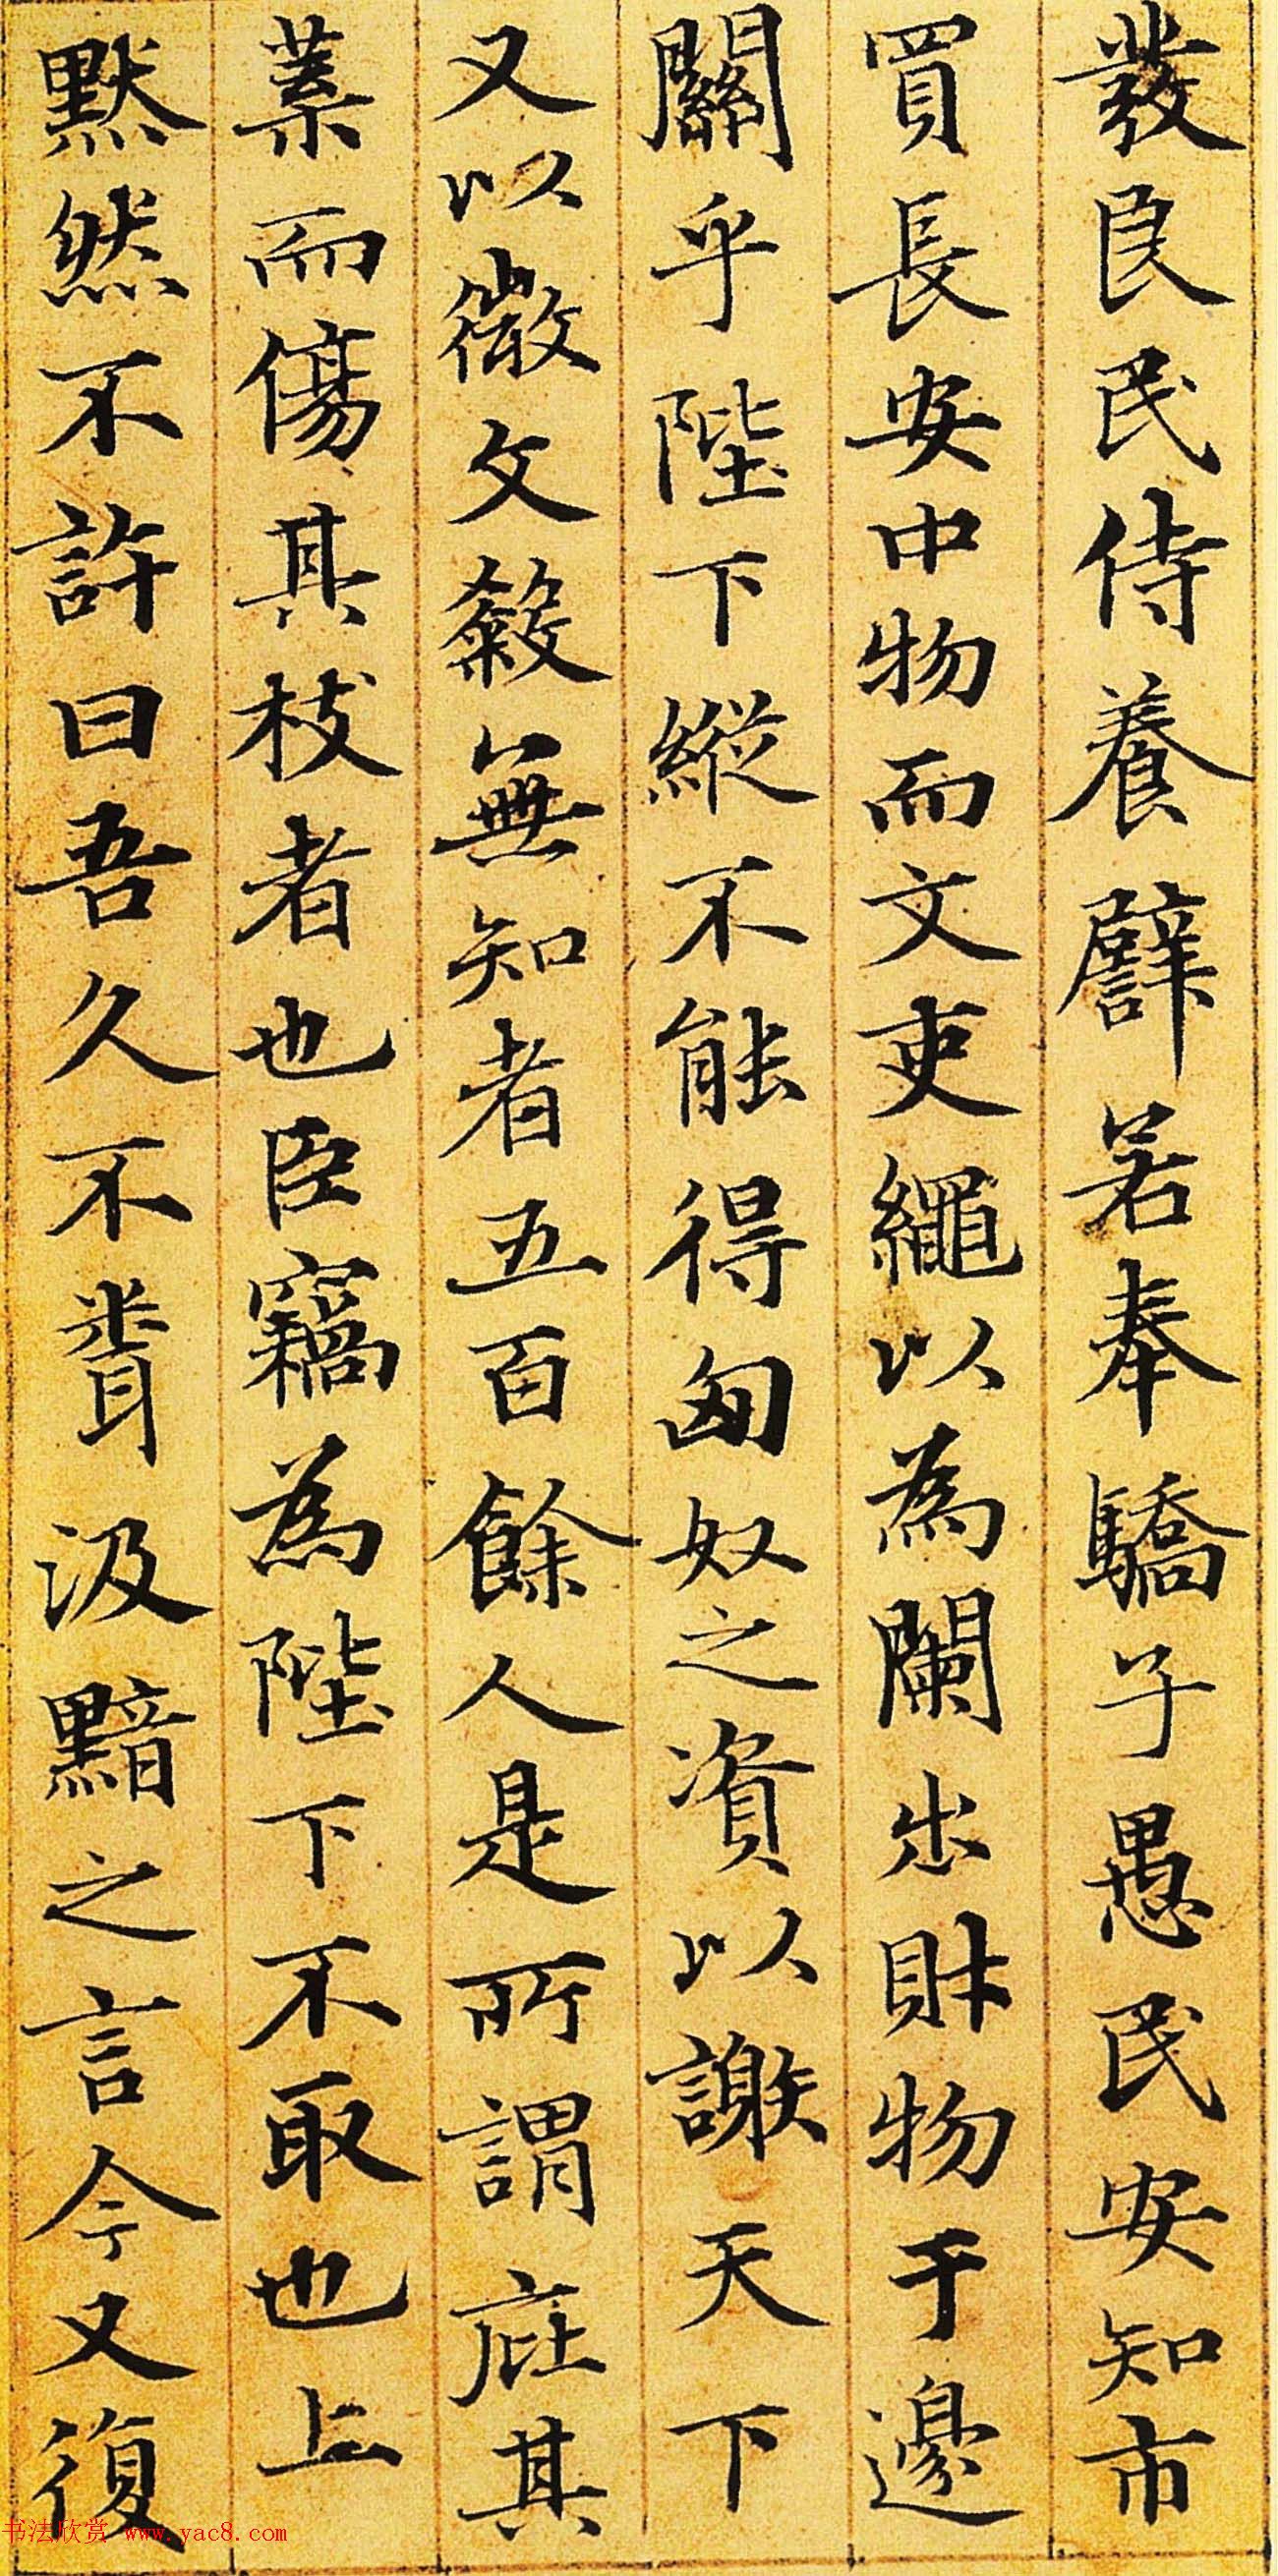 發良民侍養譬若奉驕子愚民安知市
買長安中物而文吏繩以為闌出財物于邊
關乎陛下縱不能得匈奴之資以謝天下
又以微文殺無知者五百餘人是所謂庇其
葉而傷其枝者也臣竊為陛下不取也上
默然不許曰吾久不聞汲黯之言今又復
书法欣赏 www.yac8.com